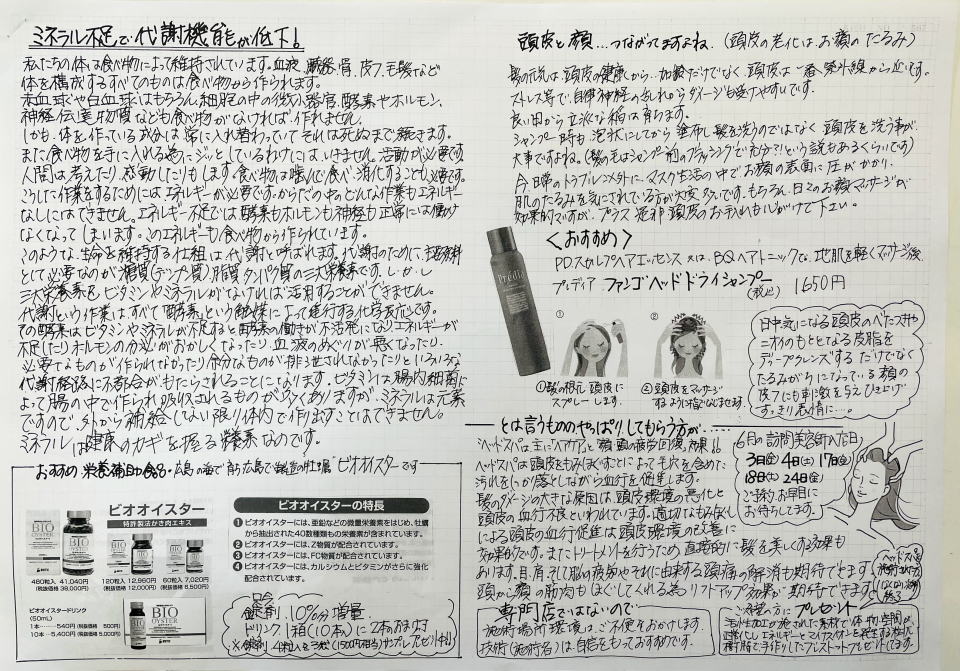 ミネラル不足で代謝機能が低下!
私たちの体は食べ物によって維持されています。血液、臓器、骨、皮フ、毛髪など
体を構成するすべてのものは食べ物から作られます。
赤血球や白血球はもちろん、細胞の中の微小器官、酵素やホルモン、
神経伝達物質なども食べ物がなければ、作れません。
しかも、体を作っている成分は常に入れ替わっていてそれは死ぬまで続きます。
また食べ物を手に入れる為にジッとしているわけにはいきません。活動が必要です。
人間は考えたり、感動したりもします。食べ物は噛んで食べ、消化することも必要です。
こうした作業をするためには、エネルギーが必要です。からだの中のどんな作業もエネルギー
なしにはできません。エネルギー不足では酵素もホルモンも神経も正常には働け
なくなってしまいます。このエネルギーも食べ物から作られています。
このような、生命を維持する仕組は代謝と呼ばれます。代謝のために、主要燃料
として必要なのが糖質(デンプン質)脂質タンパク質の三大栄養素です。しかし
三大栄養素もビタミンやミネラルがなければ活用することができません。
代謝という作業はすべて「酵素」という触媒によって進行する化学反応です。
その酵素はビタミンやミネラルが不足すると酵素の働きが不活発になりエネルギーが
不足したりホルモンの分泌がおかしくなったり、血液のめぐりが悪くなったり、
必要なものが作られなかったり余分なものが排泄されなかったりといろいろな
代謝経路に不都合がもたらされることになります。ビタミンは腸内細菌に
よって腸の中で作られ吸収されるものが多くありますが、ミネラルは元素
ですので、外から補給しない限り体内で作り出すことはできません。
ミネラルは健康のカギを握る栄養素なのです。
おすすめ 栄養補助食品・広島の海で育ち広島で製造の牡蠣"ビオオイスター"です
ビオオイスター
特許製法かき肉エキス
BIO
OYSTER
480粒入 41,040円
(税抜価格 38,000円)
120粒入 12,960円
(税抜価格 12,000円)
60粒入 7,020円
(税抜価格 6,500円)
ビオオイスタードリンク
(50mL)
1本……540円(税抜価格 500円)
10本…5,400円(税抜価格 5,000円)
BIO
OYSTER
ビオオイスターの特長
1 ビオオイスターには、亜鉛などの微量栄養素をはじめ、牡蠣
から抽出された40数種類もの栄養素が含まれています。
2 ビオオイスターには、Z物質が配合されています。
3 ビオオイスターには、FC物質が配合されています。
4 ビオオイスターには、カルシウムとビタミンがさらに強化
配合されています。
只今
金定剤.10%分増量
ドリンク1箱(10本)に2本のおまけ
頭皮と顔…つながってますよね。(頭皮の老化はお顔のたるみ)
髪の元気は頭皮の健康から…加齢だけでなく頭皮は一番紫外線から近いです。
ストレス等で、自律神経の乱れからダメージも受けやすいです。
良い田から立派な稲は育ちます。
シャンプー時も泡状にしてから塗布し髪を洗うのではなく頭皮を洗う事が
大事ですよね。(髪の毛はシャンプー前のブラッシングで充分?!という説もあるくらいです)
今、日常のトラブルコメントに、マスク生活の中でお顔の表面に圧がかかり、
肌のたるみを気にされている方が大変多いです。もちろん、日々のお顔マッサージが
効果的ですが、プラス是非頭皮のお手入れも心がけて下さい。
<おすすめ>
P.D.スカルプヘアエッセンス 又は、BQヘアトニックで、地肌を軽くマッサージ後
プレディア ファンゴヘッドドライシャンプー
(税込) 1650円
Prédia
①
②
①髪の根元、頭皮に
スプレーします。
②頭皮をマッサージ
するように指でなじませます。
日中気になる頭皮のべたつきや
ニオイのもととなる皮脂を
ディープクレンズするだけでなく
たるみがちになっている顔の
皮フにも刺激を与えひき上げ
すっきり表情に…。
とは言うもののやっぱりしてもらう方が…
"ヘッドスパ"は主に"ヘアケア"と"頭・眼の疲労回復"効果!!
ヘッドスパは頭皮をもみほぐすことによって毛穴を含めた
汚れをしっかり落としながら血行を促進します。
髪のダメージの大きな原因は、頭皮環境の悪化と
頭皮の血行不良といわれています。適切なもみほぐし
による頭皮の血行促進は頭皮環境の改善に
効果的です。またトリートメントを行うため直接的に髪を美しくする効果も
あります。目、肩、そして脳の疲労やそれに由来する頭痛の解消も期待できます。
頭から顔の筋肉もほぐしてくれる為リフトアップ効果が期待できます。
6月の訪問美容師入店日
3日(金) 4日(土) 17日(金)
18日(土) 24日(金)
ご予約お早目に
お待ちしてます。
専門店ではないので
施術場所環境は、ご不便をおかけします。
技術(施術者)は、自信をもっておすすめです。
ご希望の方に プレゼント